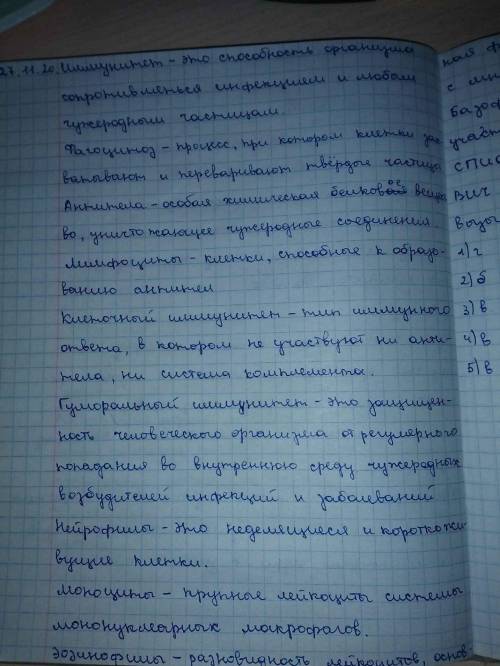 27.11.20. Иммунитет - это способность организма
сопротивляться инфекциям и любым
чужеродным частицам.
Фагоцитоз - процесс, при котором клетки зах-
ватывают и переваривают твёрдые частицы
Антитела - особая химическая белковое вещест
во, уничтожающее чужеродные соединения.
Лимфоциты - клетки, способные к образо-
ванию антител
Клеточный иммунитет - тип иммунного
ответа, в котором не участвуют ни анти-
тела, ни система комплемента.
Гуморальный иммунитет - это защищен-
ность человеческого организма от регулярного
попадания во внутреннюю среду чужеродных
возбудителей инфекций и заболеваний
Нейрофилы - это неделящиеся и коротножи-
вущие клетки.
Моноциты - крупные лейкоциты системы
мононуклеарных макрофагов.
Эозинофилы - разновидность лейкоцитов, основ-
ная
с
База
участ
СПИ
ВИЧ
Вывы
1) г
2) б
3) в
4) в
5) в